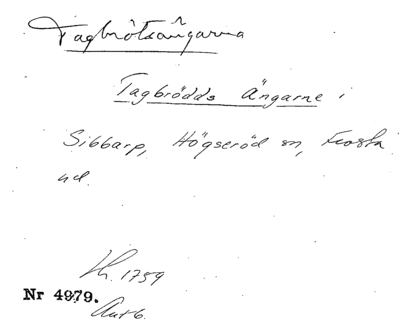 Tagbrötsängarna
Tagbrödds Ängarne i
Sibbarp, Högseröd sn, Frosta
hd.
Lh. 1759
Nr 4979.